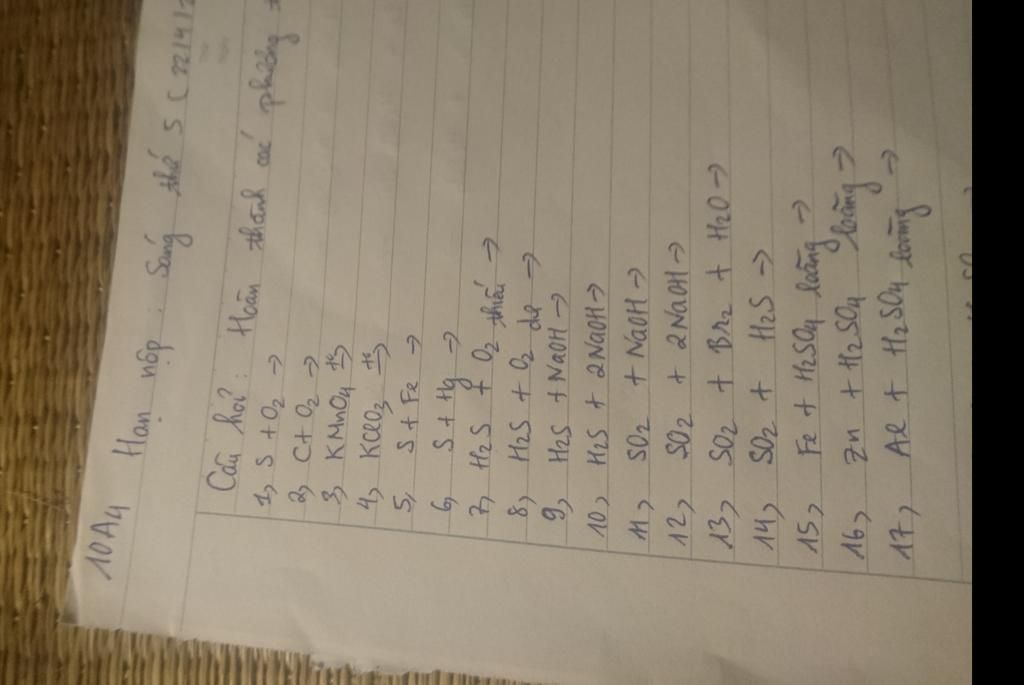 10A4 Hạn nộp: Sáng thứ 5 (22/4)
Câu hỏi?: Hoàn thành các phương
1, S + O2 →
2, C + O2 →
3, KMnO4 t° →
4, KClO3 t° →
5, S + Fe →
6, S + Hg →
7, H2S + O2 thiếu →
8, H2S + O2 dư →
9, H2S + NaOH →
10, H2S + 2NaOH →
11, SO2 + NaOH →
12, SO2 + 2NaOH →
13, SO2 + Br2 + H2O →
14, SO2 + H2S →
15, Fe + H2SO4 loãng →
16, Zn + H2SO4 loãng →
17, Al + H2SO4 loãng →